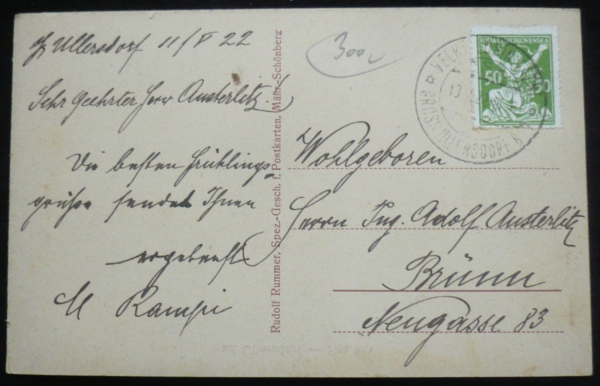 Gr Ullersdorf 11/V 22
Sehr Geehrter Herr Austerlitz!
Die besten Frühlings-
grüße sendet Ihnen
ergebenst
M Kampi
Rudolf Rummer, Spez.-Gesch. f. Postkarten, Mähr.-Schönberg
300
50 50
Wohlgeboren
Herrn Ing. Adolf Austerlitz
Brünn
Neugasse 83